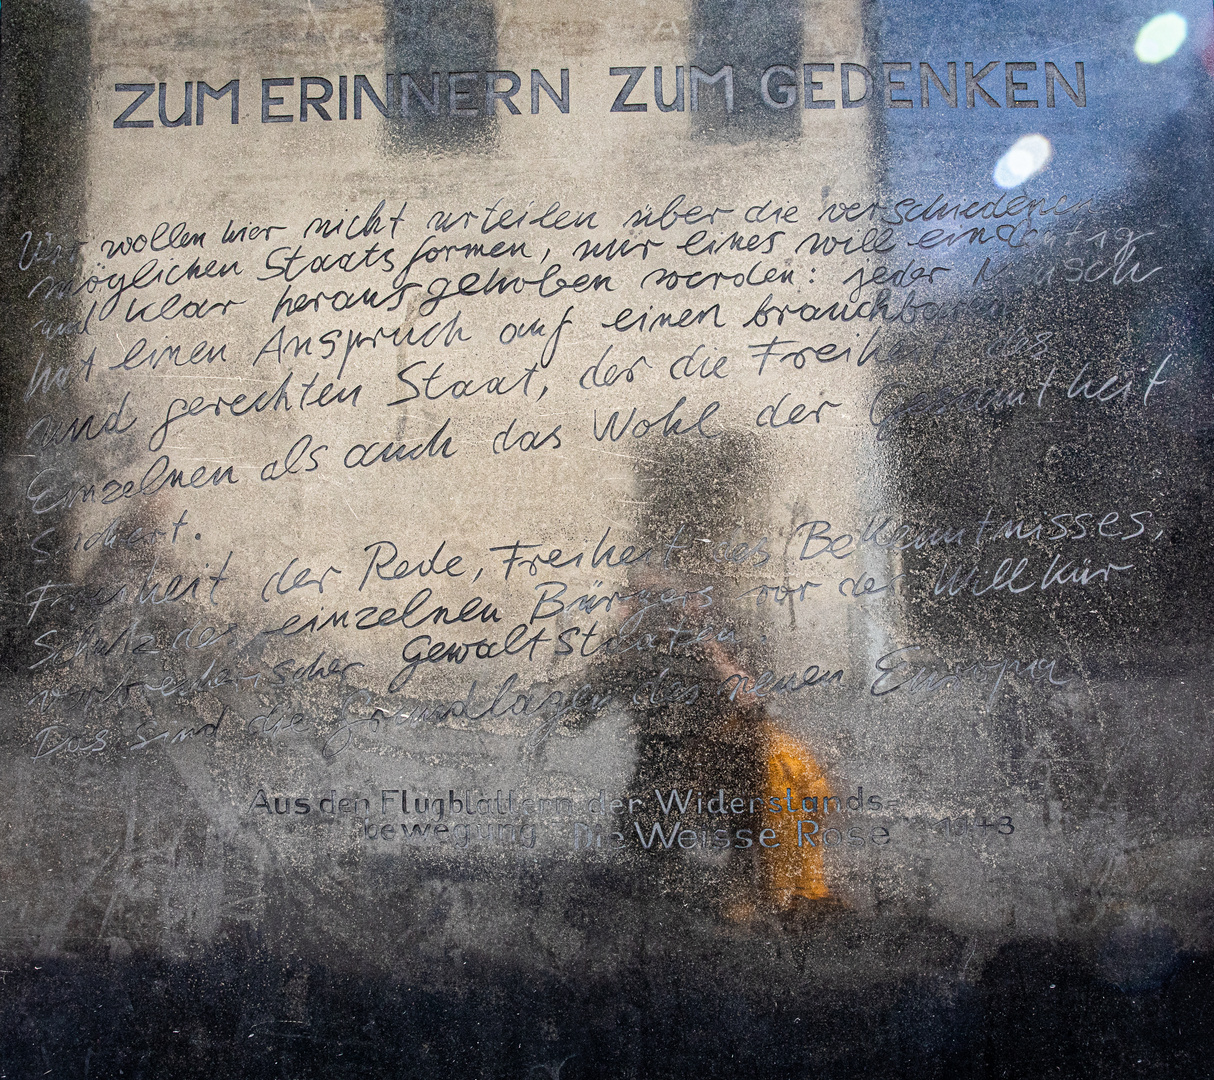 ZUM ERINNERN ZUM GEDENKEN
Wir wollen hier nicht urteilen über die verschiedenen
möglichen Staatsformen, nur eines will eindeutig
und klar herausgehoben werden: jeder Mensch
hat einen Anspruch auf einen brauchbaren
und gerechten Staat, der die Freiheit des
Einzelnen als auch das Wohl der Gesamtheit
sichert.
Freiheit der Rede, Freiheit des Bekenntnisses,
Schutz des einzelnen Bürgers vor der Willkür
verbrecherischer Gewaltstaaten.
Das sind die Grundlagen des neuen Europa
Aus den Flugblättern der Widerstands=
bewegung Die Weisse Rose 1943